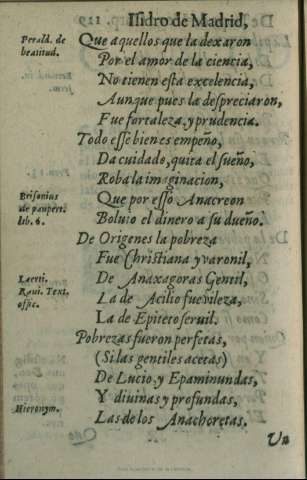 Isidro de Madrid,
Perald. de
beatitud.
Que aquellos que la dexaron
Por el amor de la ciencia,
No tienen esta excelencia,
Aunque pues la despreciaron,
Fue fortaleza, y prudencia.
Todo esse bien es empeño,
Da cuidado, quita el sueño,
Roba la imaginacion,
Brisonius
de paupert.
lib. 6.
Que por esso Anacreon
Boluio el dinero a su dueño.
De Origenes la pobreza
Fue Christiana y varonil,
Laerti.
Raui. Text.
offic.
De Anaxagoras Gentil,
La de Acilio fue vileza,
La de Epiteto seruil.
Pobrezas fueron perfetas,
(Si las gentiles acetas)
De Lucio, y Epaminundas,
Y diuinas y profundas,
Hieronym.
Las de los Anachoretas.
Vn